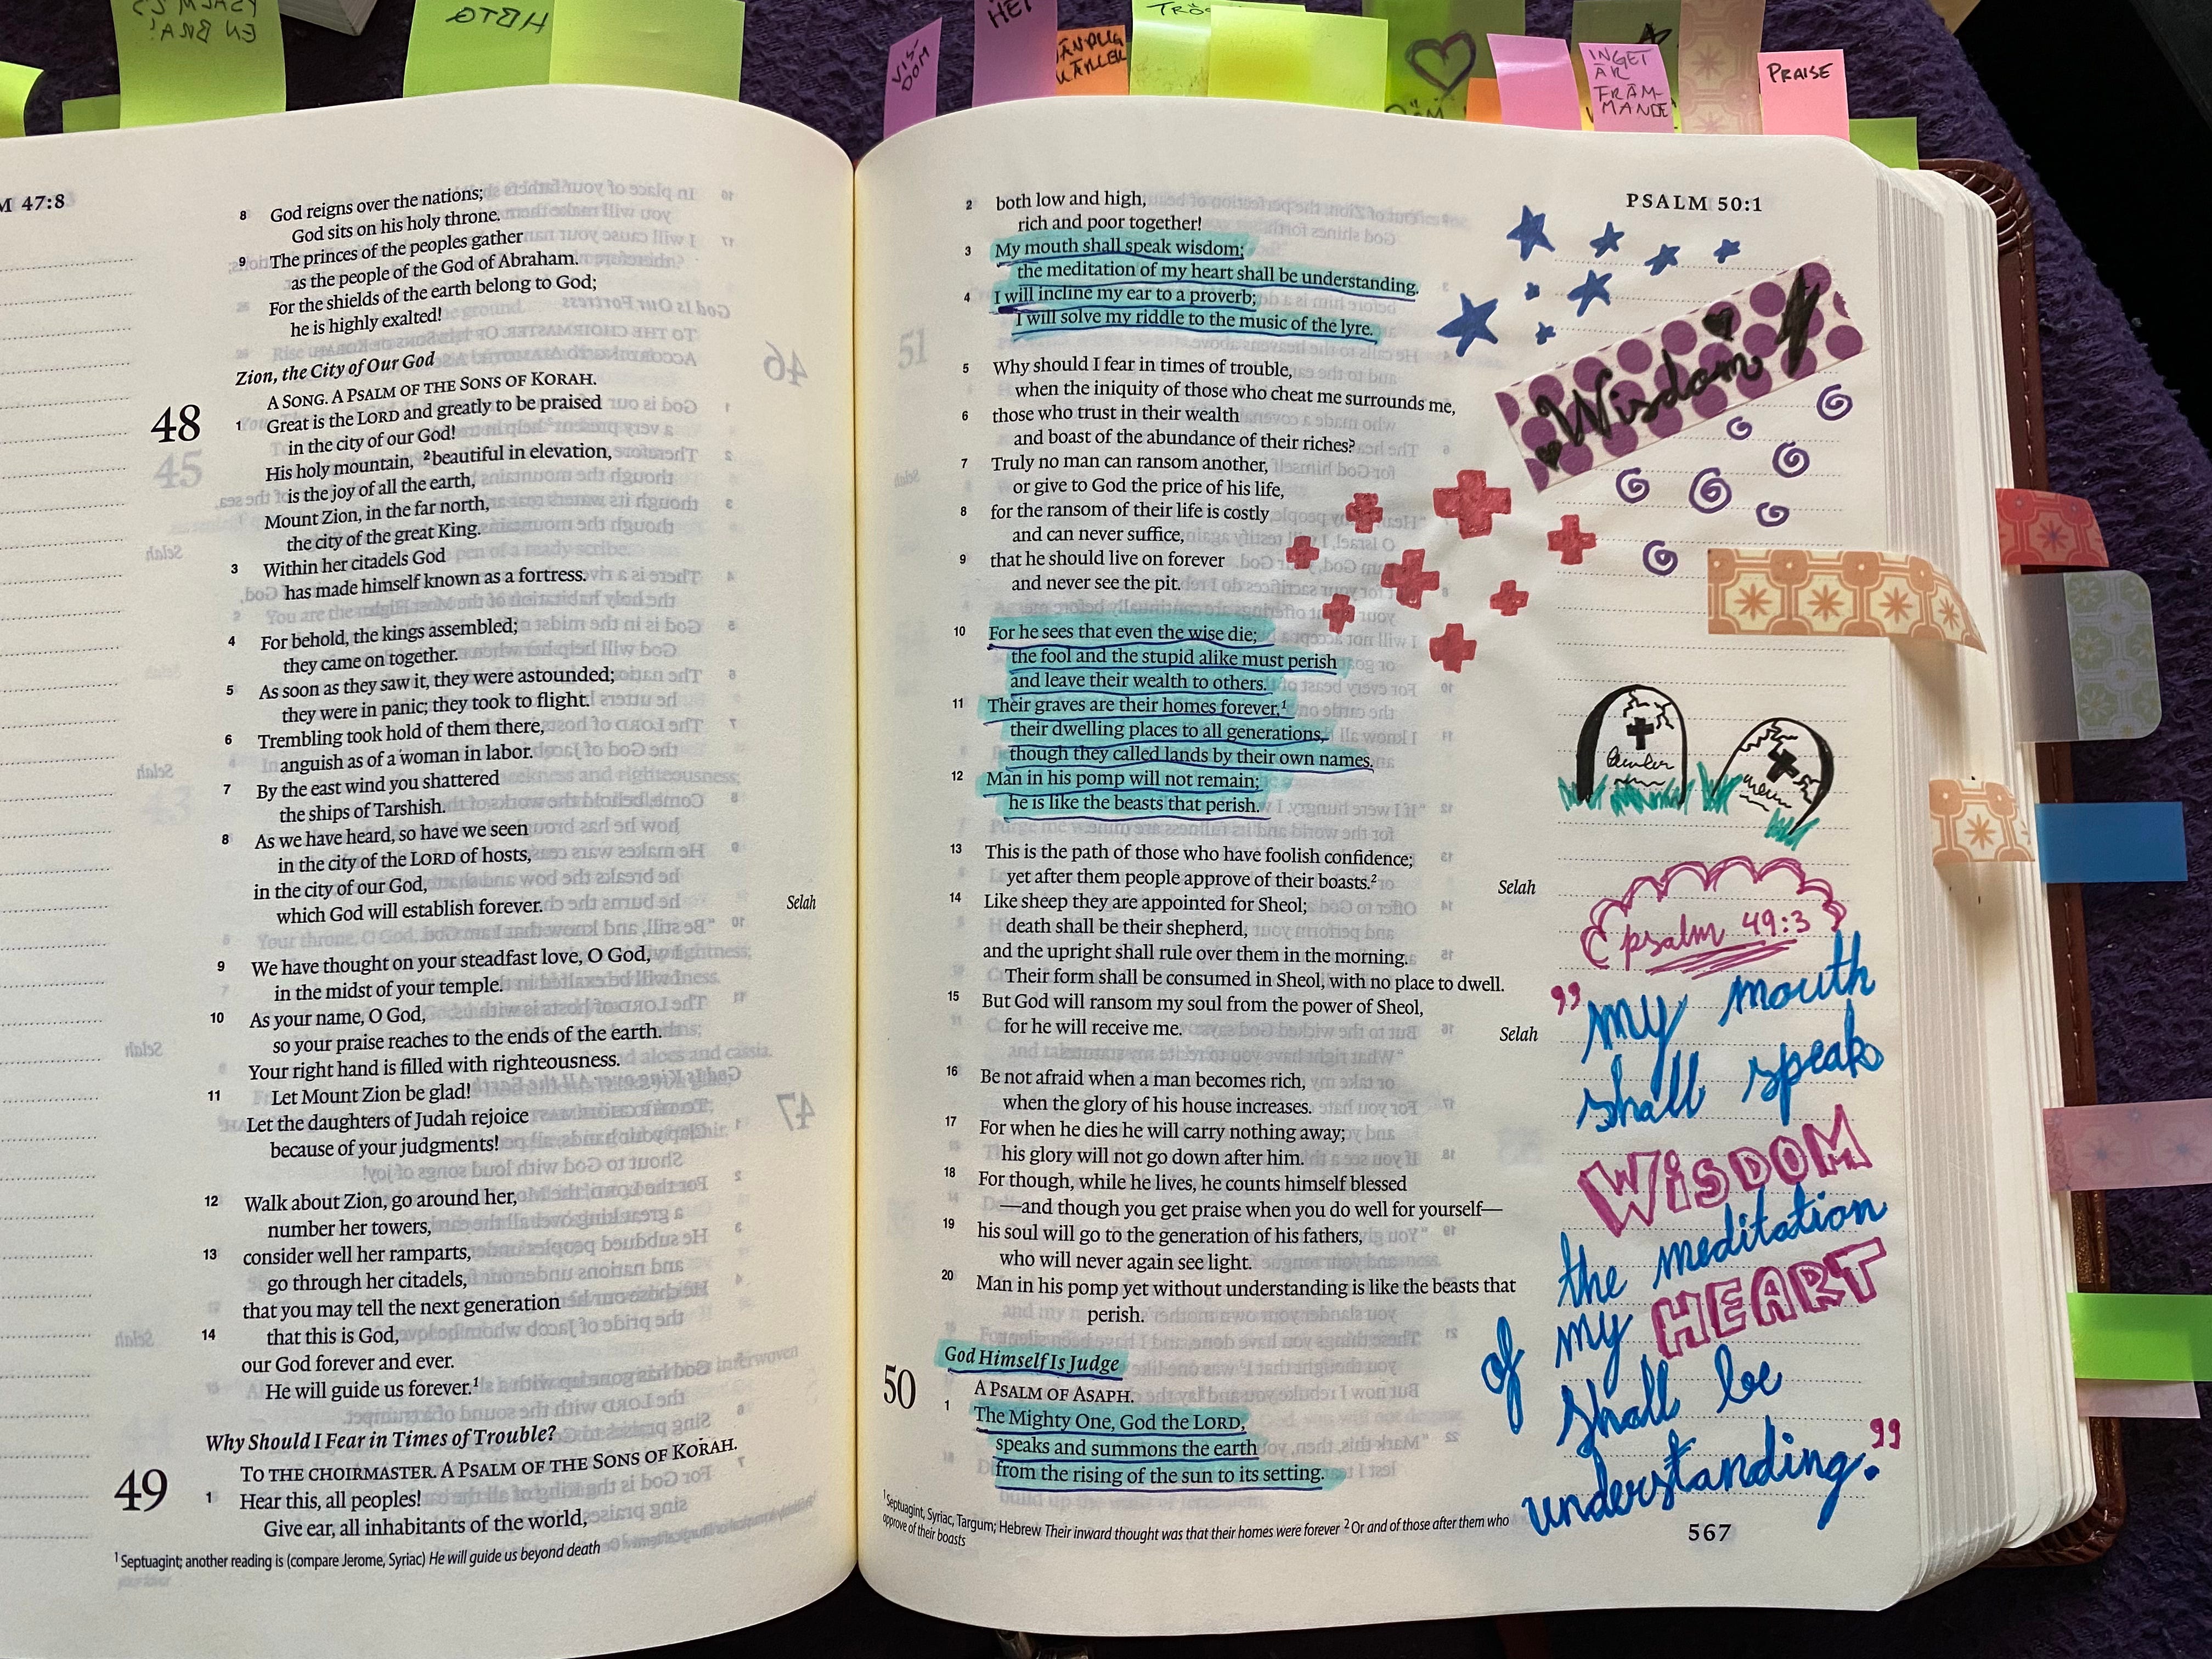 EN BRA!
HBTQ
VIS-
DOM
HET
PRAISE
INGET
ÄR
FRÄM-
MANDE
M 47:8
8 God reigns over the nations;
God sits on his holy throne.
9 The princes of the peoples gather
as the people of the God of Abraham.
For the shields of the earth belong to God;
he is highly exalted!
Zion, the City of Our God
A SONG. A PSALM OF THE SONS OF KORAH.
48
1 Great is the LORD and greatly to be praised
in the city of our God!
His holy mountain, 2 beautiful in elevation,
is the joy of all the earth,
Mount Zion, in the far north,
the city of the great King.
3 Within her citadels God
has made himself known as a fortress.
4 For behold, the kings assembled;
they came on together.
5 As soon as they saw it, they were astounded;
they were in panic; they took to flight.
6 Trembling took hold of them there,
anguish as of a woman in labor.
7 By the east wind you shattered
the ships of Tarshish.
8 As we have heard, so have we seen
in the city of the LORD of hosts,
in the city of our God,
which God will establish forever. Selah
9 We have thought on your steadfast love, O God,
in the midst of your temple.
10 As your name, O God,
so your praise reaches to the ends of the earth.
Your right hand is filled with righteousness.
11 Let Mount Zion be glad!
Let the daughters of Judah rejoice
because of your judgments!
12 Walk about Zion, go around her,
number her towers,
13 consider well her ramparts,
go through her citadels,
that you may tell the next generation
14 that this is God,
our God forever and ever.
He will guide us forever.1
Why Should I Fear in Times of Trouble?
TO THE CHOIRMASTER. A PSALM OF THE SONS OF KORAH.
49
1 Hear this, all peoples!
Give ear, all inhabitants of the world,
1 Septuagint; another reading is (compare Jerome, Syriac) He will guide us beyond death
PSALM 50:1
2 both low and high,
rich and poor together!
3 My mouth shall speak wisdom;
the meditation of my heart shall be understanding.
4 I will incline my ear to a proverb;
I will solve my riddle to the music of the lyre.
5 Why should I fear in times of trouble,
when the iniquity of those who cheat me surrounds me,
6 those who trust in their wealth
and boast of the abundance of their riches?
7 Truly no man can ransom another,
or give to God the price of his life,
8 for the ransom of their life is costly
and can never suffice,
9 that he should live on forever
and never see the pit.
10 For he sees that even the wise die;
the fool and the stupid alike must perish
and leave their wealth to others.
11 Their graves are their homes forever,1
their dwelling places to all generations,
though they called lands by their own names.
12 Man in his pomp will not remain;
he is like the beasts that perish.
13 This is the path of those who have foolish confidence;
yet after them people approve of their boasts.2 Selah
14 Like sheep they are appointed for Sheol;
death shall be their shepherd,
and the upright shall rule over them in the morning.
Their form shall be consumed in Sheol, with no place to dwell.
15 But God will ransom my soul from the power of Sheol,
for he will receive me. Selah
16 Be not afraid when a man becomes rich,
when the glory of his house increases.
17 For when he dies he will carry nothing away;
his glory will not go down after him.
18 For though, while he lives, he counts himself blessed
—and though you get praise when you do well for yourself—
19 his soul will go to the generation of his fathers,
who will never again see light.
20 Man in his pomp yet without understanding is like the beasts that
perish.
God Himself Is Judge
50
A PSALM OF ASAPH.
1 The Mighty One, God the LORD,
speaks and summons the earth
from the rising of the sun to its setting.
1 Septuagint, Syriac, Targum; Hebrew Their inward thought was that their homes were forever 2 Or and of those after them who
approve of their boasts
Wisdom
psalm 49:3
"my mouth
shall speak
WISDOM
the meditation
of my HEART
shall be
understanding."
567